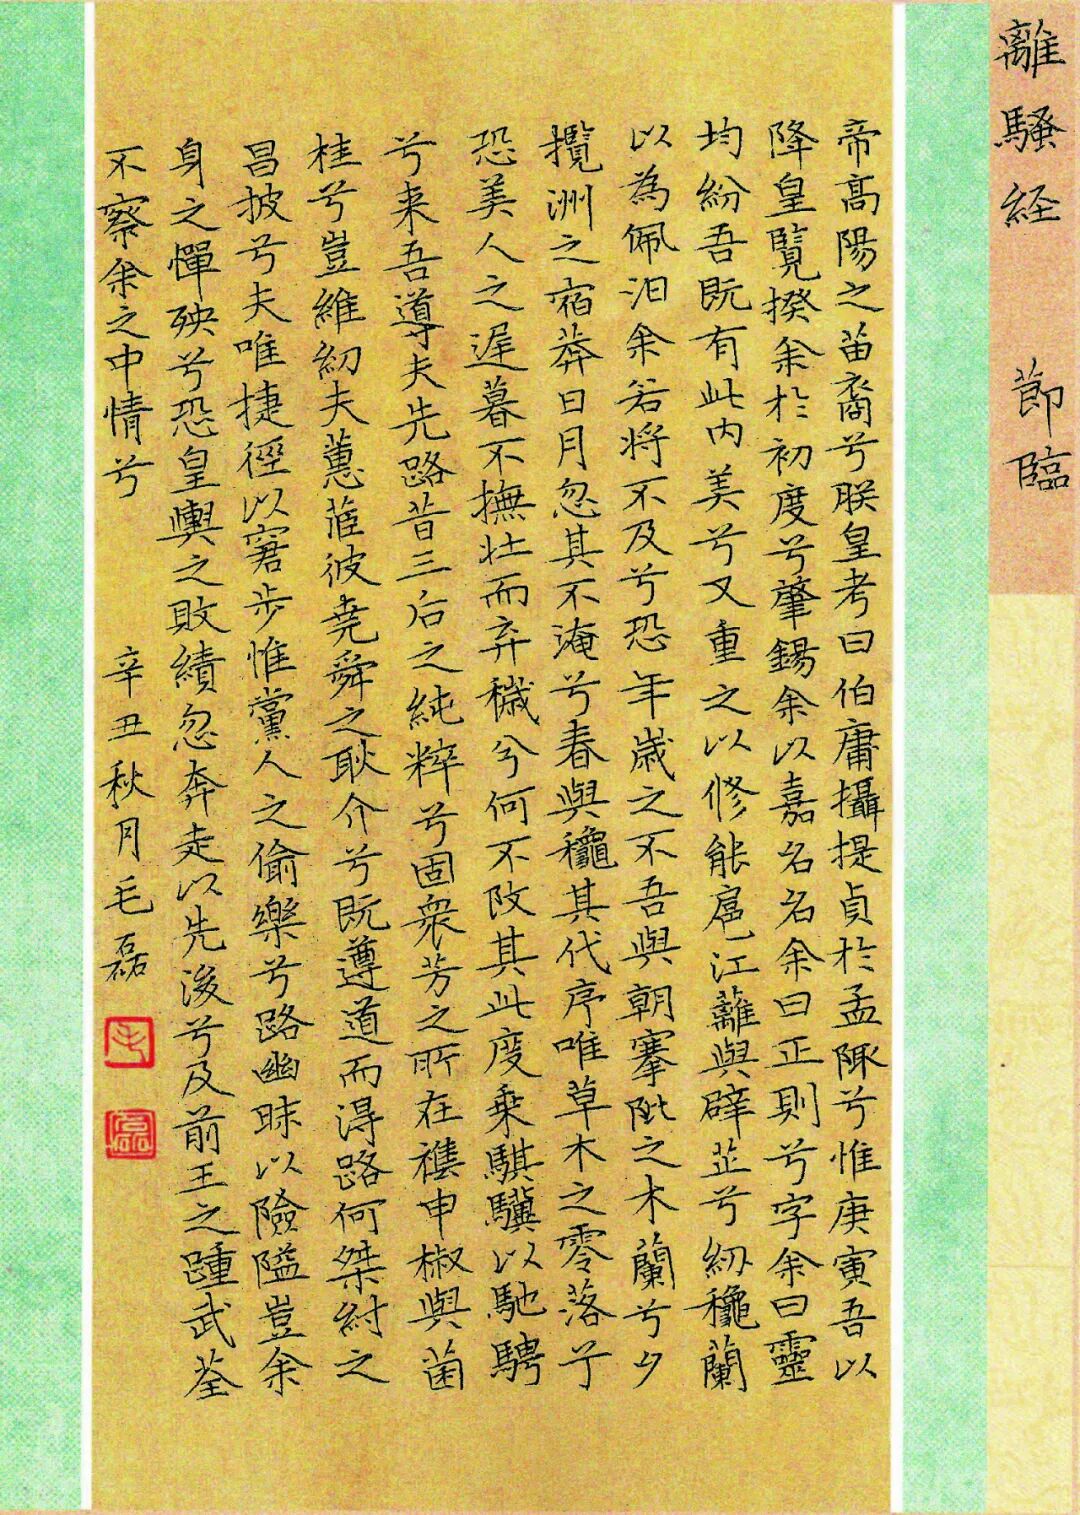 離騷経 節臨
帝高陽之苗裔兮朕皇考曰伯庸攝提貞於孟陬兮惟庚寅吾以
降皇覽揆余於初度兮肇錫余以嘉名名余曰正則兮字余曰靈
均紛吾既有此内美兮又重之以修能扈江蘺與辟芷兮紉穐蘭
以為佩汩余若将不及兮恐年歲之不吾與朝搴阰之木蘭兮夕
攬洲之宿莽日月忽其不淹兮春與龝其代序唯草木之零落兮
恐美人之遅暮不撫壮而弃穢兮何不改其此度乗騏驥以馳騁
兮来吾導夫先路昔三后之純粹兮固衆芳之所在襍申椒與菌
桂兮豈維紉夫蕙茝彼尭舜之耿介兮既遵道而得路何桀紂之
昌披兮夫唯捷徑以窘步惟黨人之偷樂兮路幽昧以險隘豈余
身之憚殃兮恐皇輿之敗績忽奔走以先後兮及前王之踵武荃
不察余之中情兮
辛丑秋月毛磊